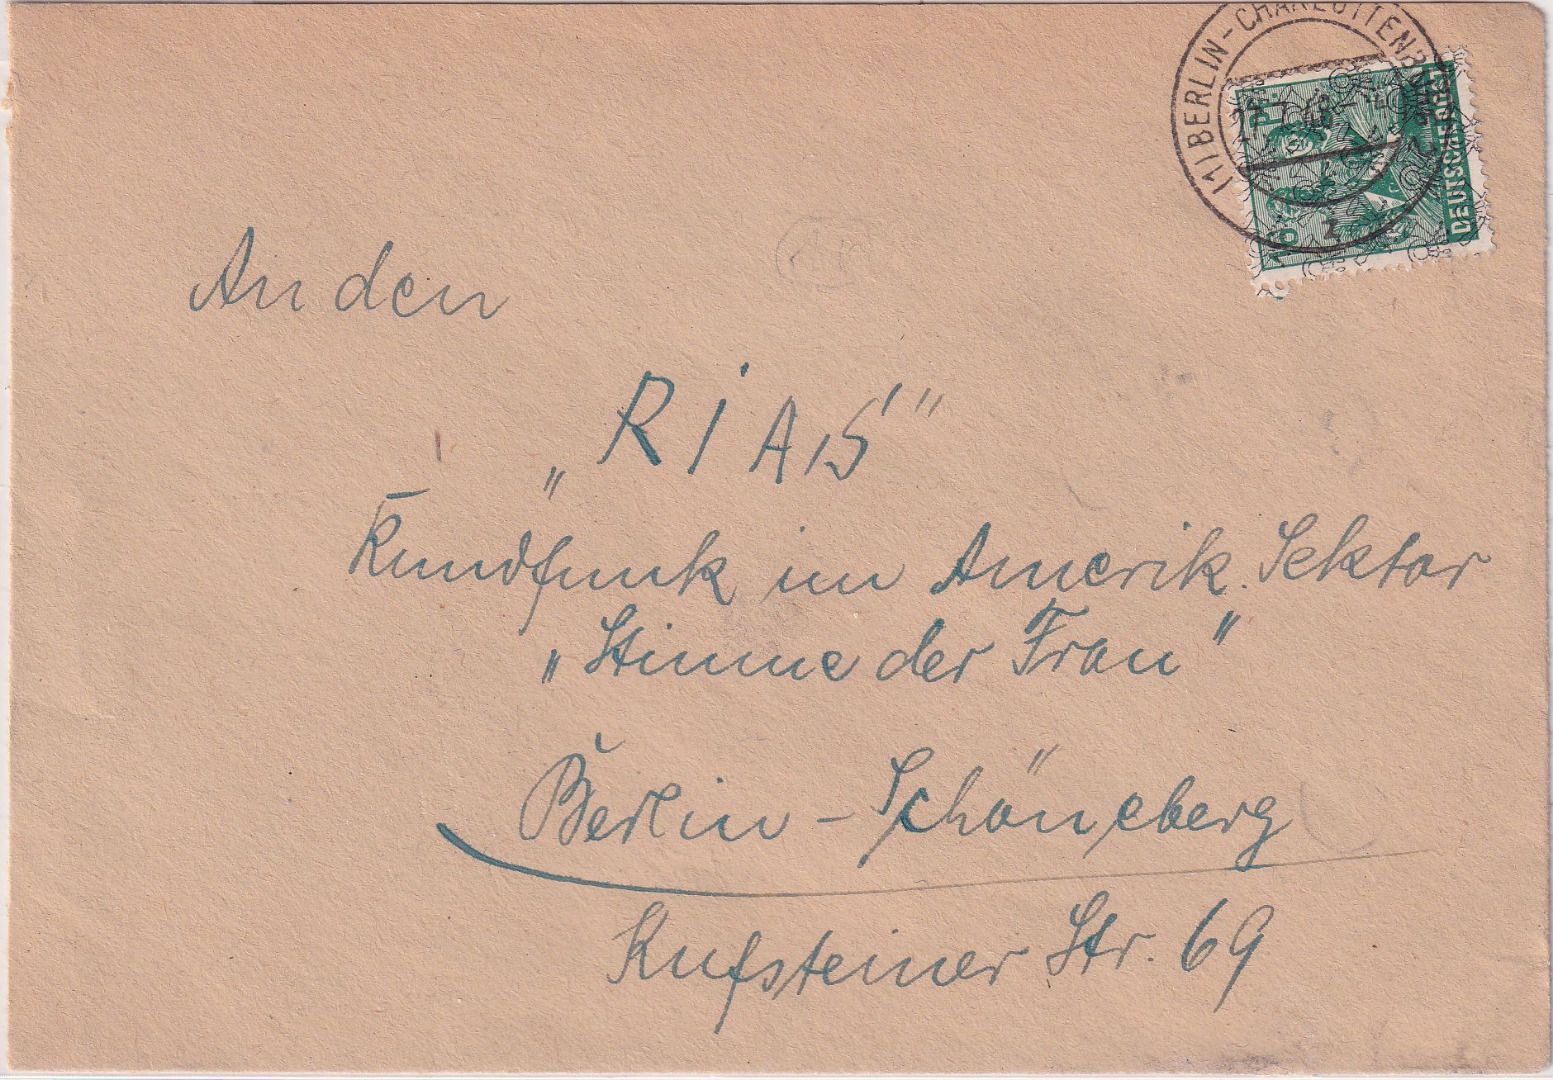 (1) BERLIN-CHARLOTTENBURG
DEUTSCHE POST
16
An den
„RIAS“
Rundfunk im Amerik. Sektor
„Stimme der Frau“
Berlin-Schöneberg
Kufsteiner Str. 69